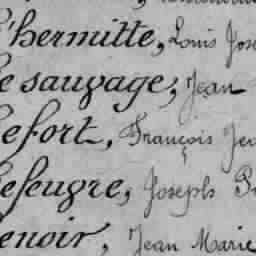 L'hermitte, Louis Jose
Le sauvage, Jean
Lefort, François Jea
Lefeugre, Joseph
Lenoir, Jean Marie